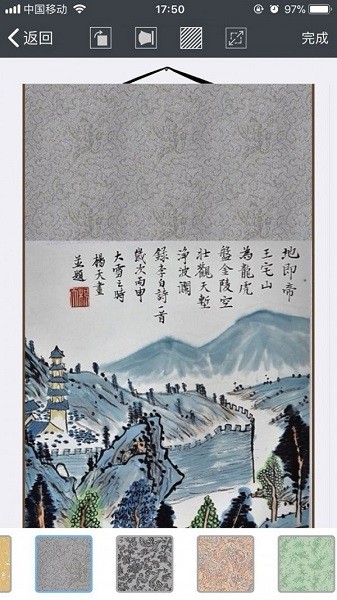 中国移动 17:50 97%
返回 完成
地即帝
王宅山
為龍虎
盤金陵空
壯觀天塹
淨波瀾
錄李白詩一首
歲次丙申
大雪之時
楊天畫
並題